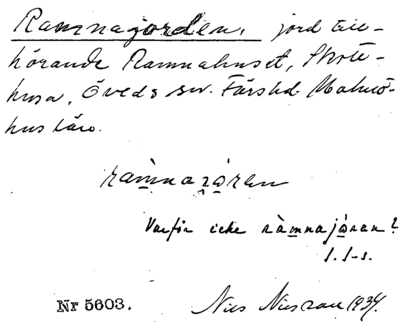 Ramnajorden, jord till-
hörande Ramnahuset, Skarte-
husa, Öveds sn. Färs hd. Malmö-
hus län.
ràmnaʒo̱ren
Varför icke ràmnajo̱ren?
I. I-s.
Nr 5603.
Nils Nilsson 1934.